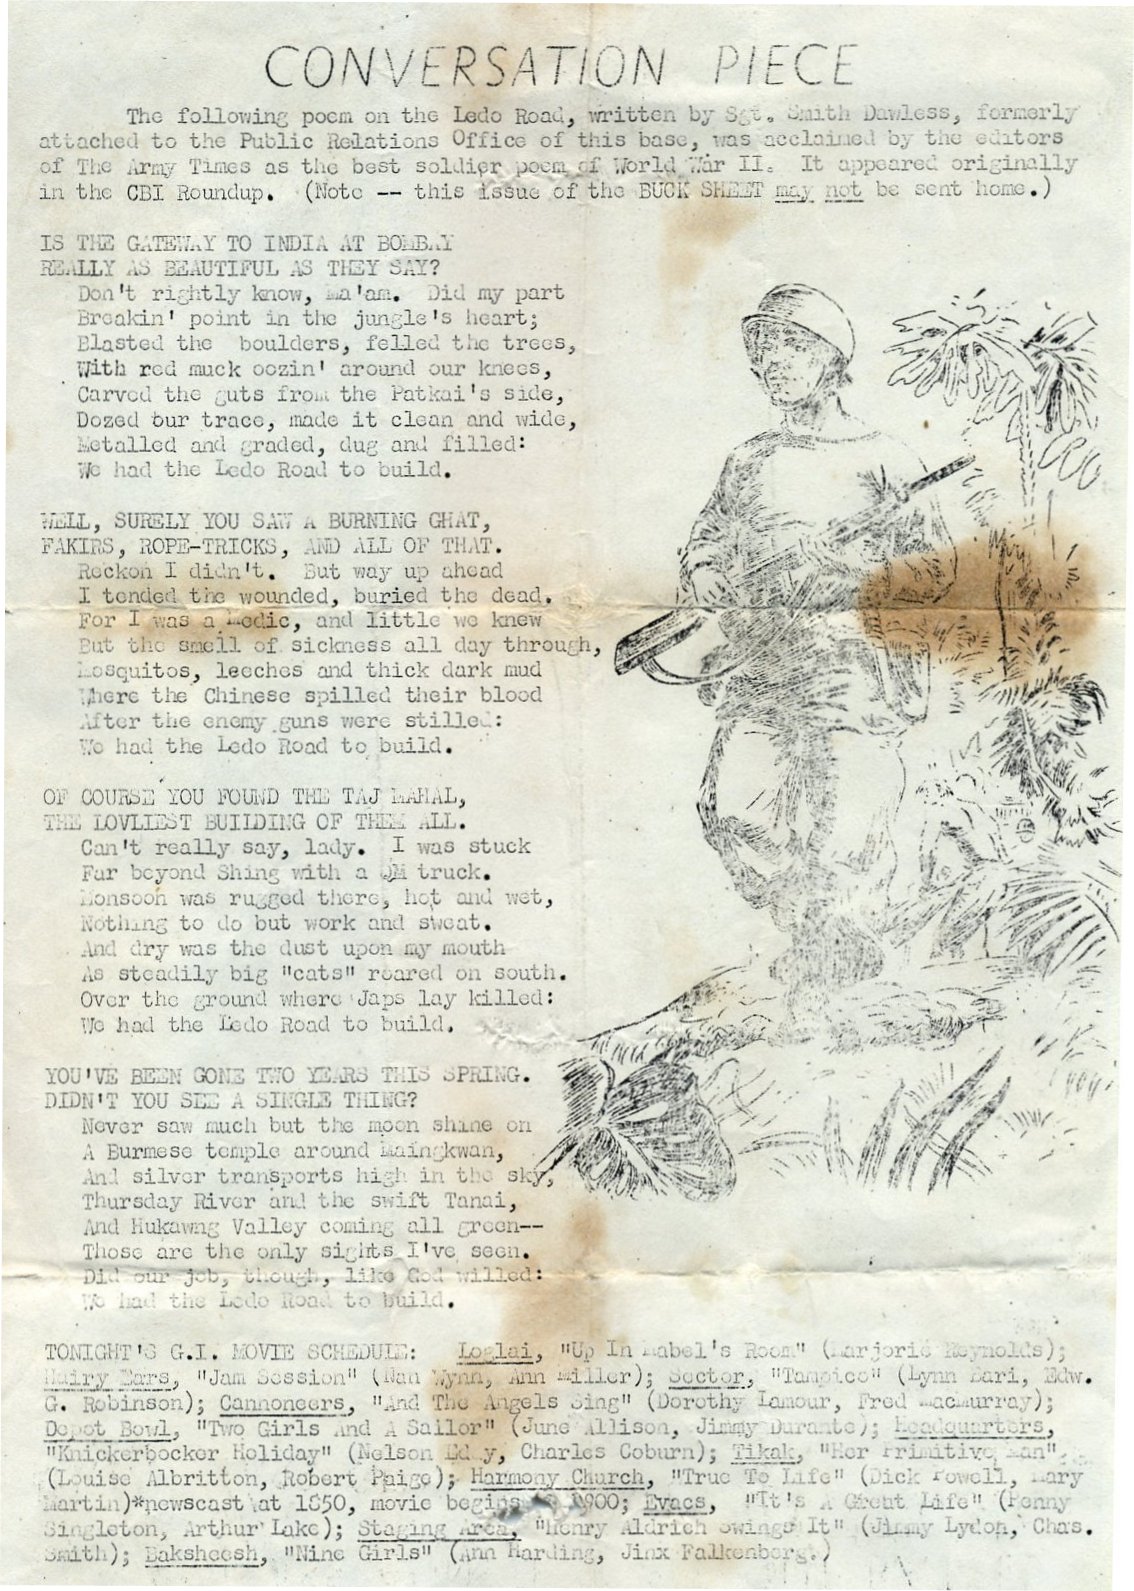 CONVERSATION PIECE
The following poem on the Ledo Road, written by Sgt. Smith Dawless, formerly
attached to the Public Relations Office of this base, was acclaimed by the editors
of The Army Times as the best soldier poem of World War II. It appeared originally
in the CBI Roundup. (Note -- this issue of the BUCK SHEET may not be sent home.)
IS THE GATEWAY TO INDIA AT BOMBAY
REALLY AS BEAUTIFUL AS THEY SAY?
Don't rightly know, Ma'am. Did my part
Breakin' point in the jungle's heart;
Blasted the boulders, felled the trees,
With red muck oozin' around our knees,
Carved the guts from the Patkai's side,
Dozed our trace, made it clean and wide,
Metalled and graded, dug and filled:
We had the Ledo Road to build.
WELL, SURELY YOU SAW A BURNING GHAT,
FAKIRS, ROPE-TRICKS, AND ALL OF THAT.
Reckon I didn't. But way up ahead
I tended the wounded, buried the dead.
For I was a Medic, and little we knew
But the smell of sickness all day through,
Mosquitos, leeches and thick dark mud
Where the Chinese spilled their blood
After the enemy guns were stilled:
We had the Ledo Road to build.
OF COURSE YOU FOUND THE TAJ MAHAL,
THE LOVLIEST BUILDING OF THEM ALL.
Can't really say, lady. I was stuck
Far beyond Shing with a QM truck.
Monsoon was rugged there, hot and wet,
Nothing to do but work and sweat.
And dry was the dust upon my mouth
As steadily big "cats" roared on south.
Over the ground where Japs lay killed:
We had the Ledo Road to build.
YOU'VE BEEN GONE TWO YEARS THIS SPRING.
DIDN'T YOU SEE A SINGLE THING?
Never saw much but the moon shine on
A Burmese temple around Maingkwan,
And silver transports high in the sky,
Thursday River and the swift Tanai,
And Hukawng Valley coming all green--
Those are the only sights I've seen.
Did our job, though, like God willed:
We had the Ledo Road to build.
TONIGHT'S G.I. MOVIE SCHEDULE: Loglai, "Up In Mabel's Room" (Marjorie Reynolds);
Hairy Ears, "Jam Session" (Nan Wynn, Ann Miller); Sector, "Tampico" (Lynn Bari, Edw.
G. Robinson); Cannoneers, "And The Angels Sing" (Dorothy Lamour, Fred MacMurray);
Depot Bowl, "Two Girls And A Sailor" (June Allison, Jimmy Durante); Headquarters,
"Knickerbocker Holiday" (Nelson Eddy, Charles Coburn); Tikak, "Her Primitive Man"
(Louise Albritton, Robert Paige); Harmony Church, "True To Life" (Dick Powell, Mary
Martin)*newscast at 1850, movie begins 1900; Evacs, "It's A Great Life" (Penny
Singleton, Arthur Lake); Staging Area, "Henry Aldrich Swings It" (Jimmy Lydon, Chas.
Smith); Baksheesh, "Nine Girls" (Ann Harding, Jinx Falkenberg.)